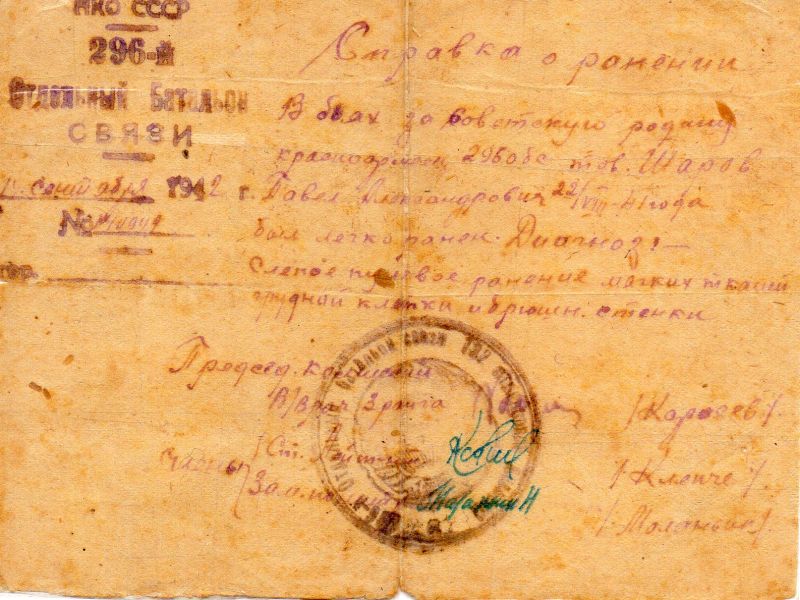 НКО СССР
296-й
Отдельный Батальон
СВЯЗИ
сентября 1942 г.
№
Справка о ранении
В боях за советскую родину
красноармеец 296 обс тов. Шаров
Павел Александрович 22/VIII-41 года
был легко ранен. Диагноз: —
Слепое пулевое ранение мягких тканей
грудной клетки и брюшн. стенки
Председ. комиссии
В/врач 3 ранга /Карасев/.
Члены
/Ст. /Клепче/.
Зам. /Маланьин/.